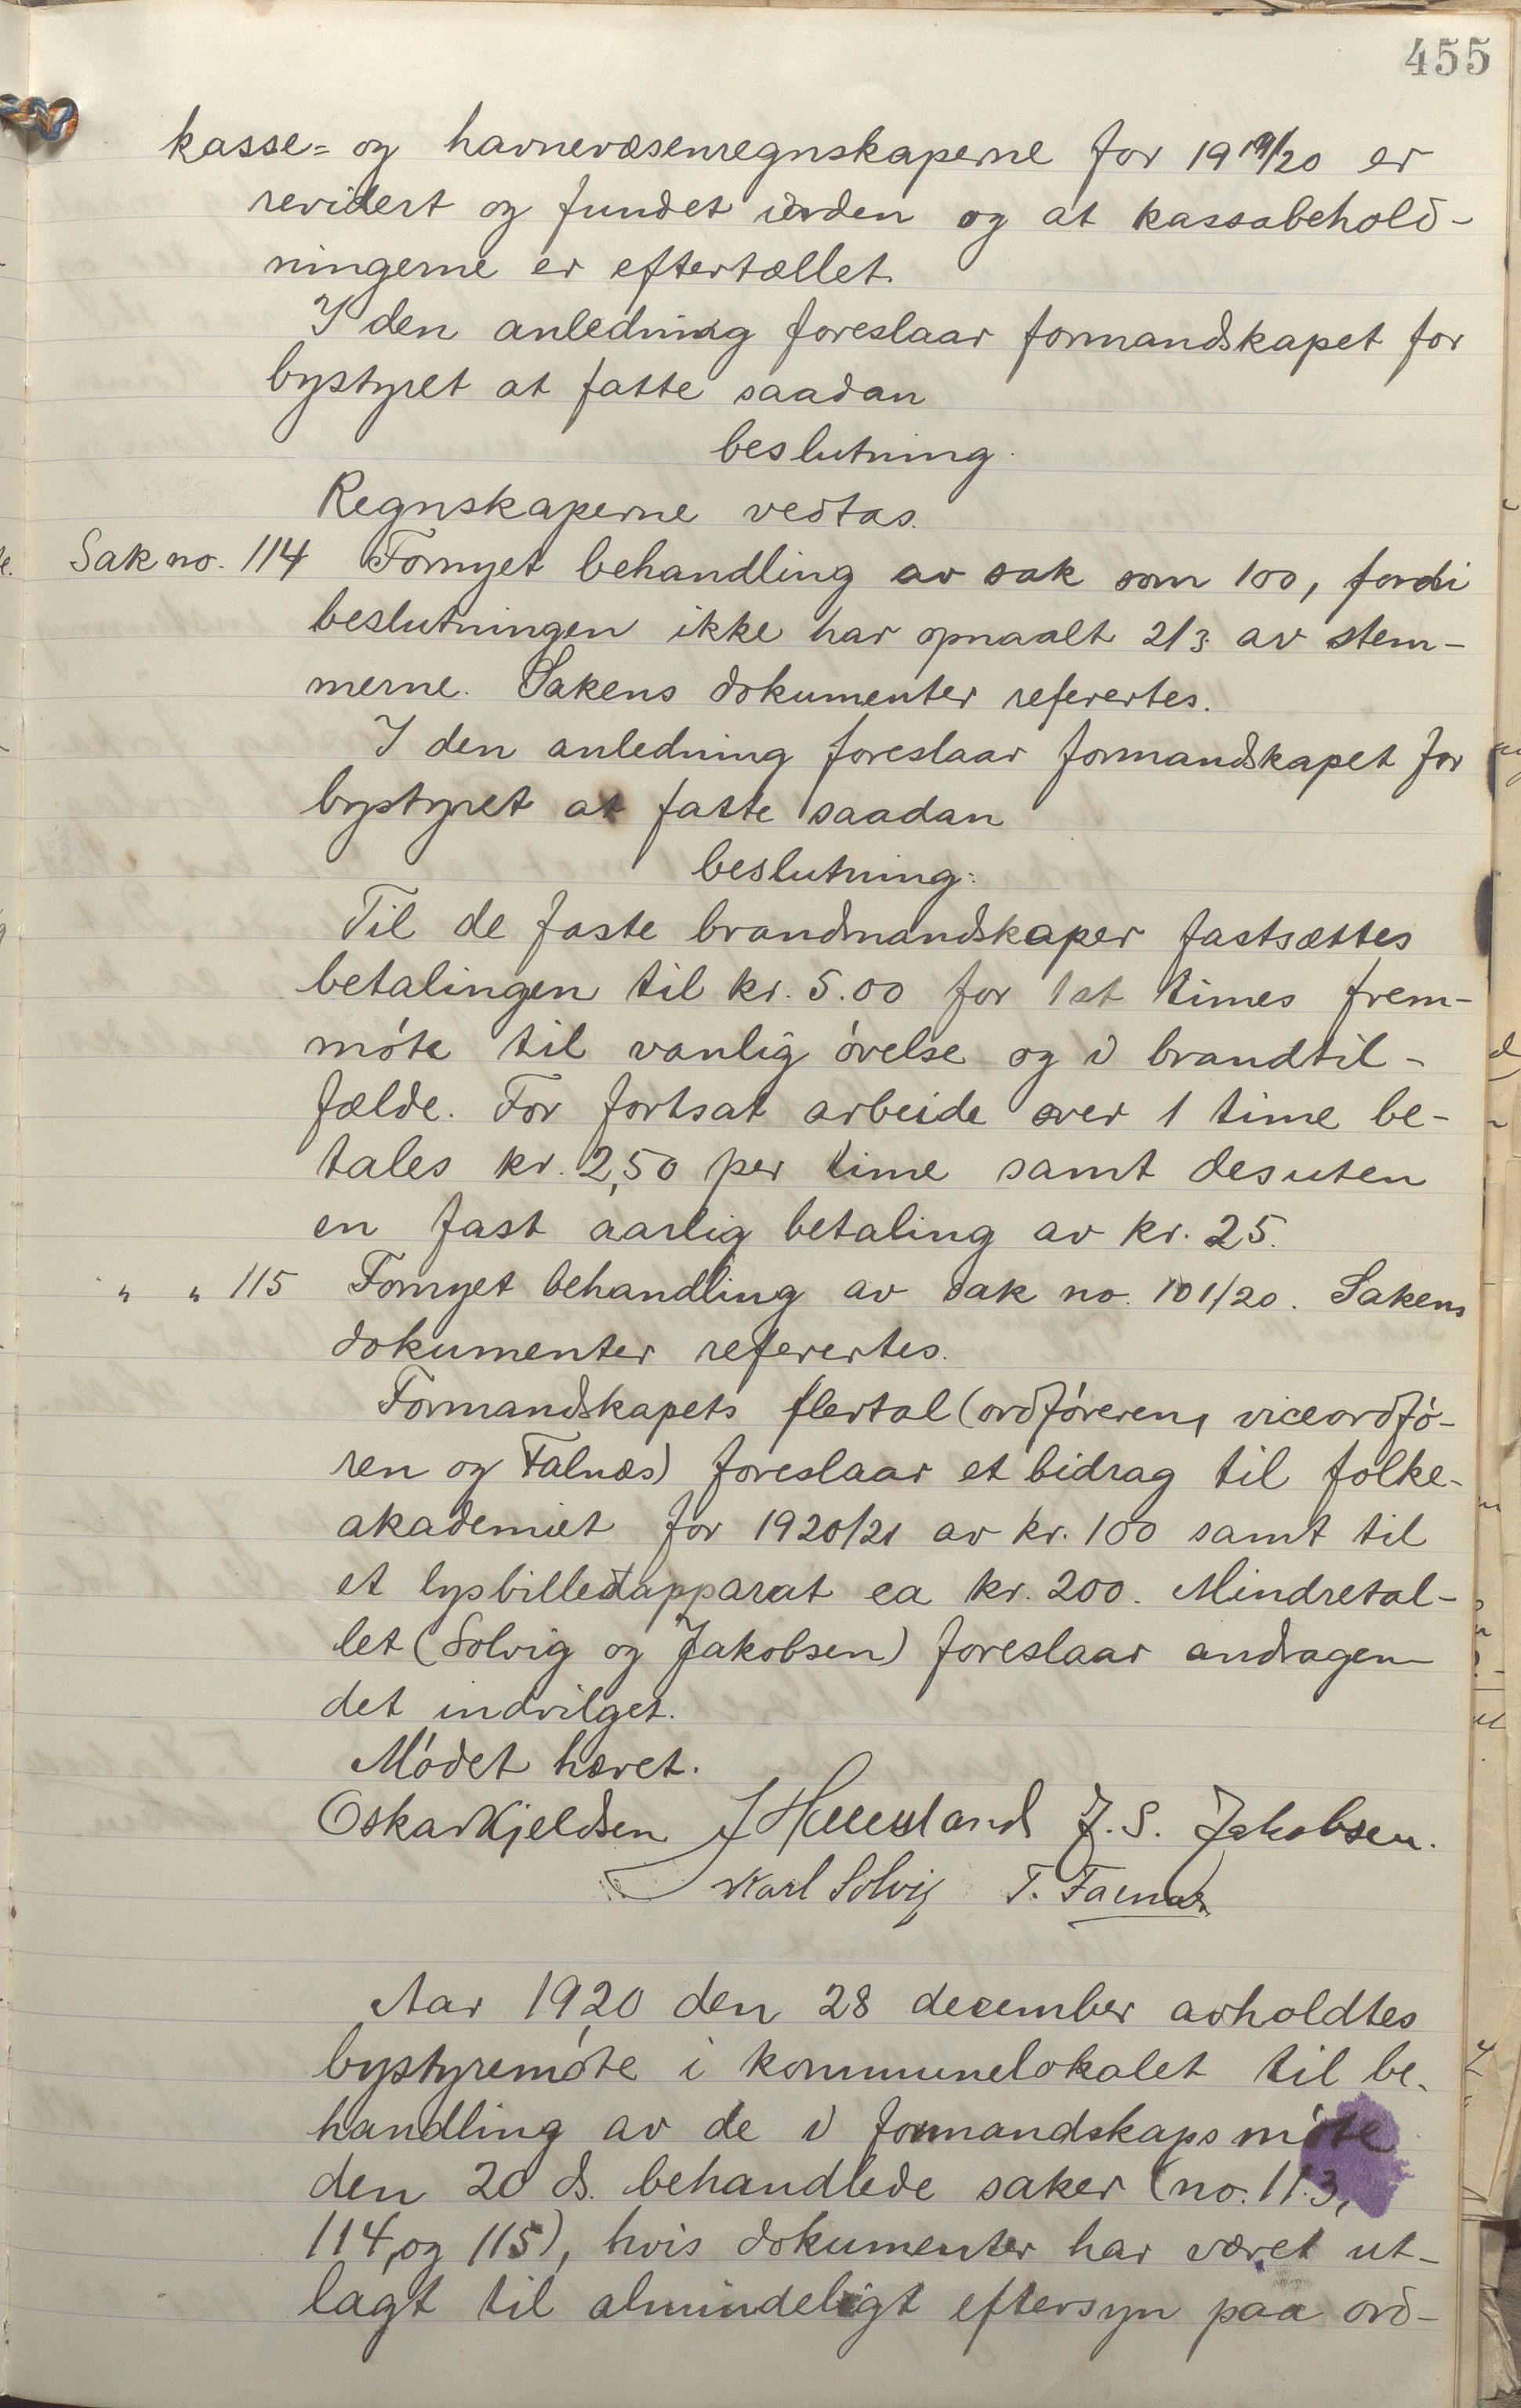 455
kasse= og havnevæsenregnskaperne for 1919/20 er
revidert og fundet iorden og at kassabehold-
ningerne er eftertællet.
I den anledning foreslaar formandskapet for
bystyret at fatte saadan
beslutning.
Regnskaperne vedtas.
Sak no. 114 Fornyet behandling av sak som 100, fordi
beslutningen ikke har opnaalt 2/3 av stem-
merne. Sakens dokumenter referertes.
I den anledning foreslaar formandskapet for
bystyret at fatte saadan
beslutning:
Til de faste brandmandskaper fastsættes
betalingen til kr. 5.00 for 1 st times frem-
møte til vanlig øvelse og i brandtil-
fælde. For fortsat arbeide over 1 time be-
tales kr. 2,50 per time samt desuten
en fast aarlig betaling av kr. 25.
" " 115 Fornyet behandling av sak no. 101/20. Sakens
dokumenter referertes.
Formandskapets flertal (ordføreren, viceordfø-
ren og Falnæs) foreslaar et bidrag til folke-
akademiet for 1920/21 av kr. 100 samt til
et lysbilledapparat ca kr. 200. Mindretal-
let (Solvig og Jakobsen) foreslaar andragen-
det indvilget.
Mødet hævet.
Oskar Kjeldsen J. S. Jakobsen.
Karl Solvig T. Falnæs
Aar 1920 den 28 december avholdtes
bystyremøte i kommunelokalet til be-
handling av de i formandskapsmøte
den 20 ds. behandlede saker (no. 113,
114, og 115), hvis dokumenter har været ut-
lagt til almindeligt eftersyn paa ord-